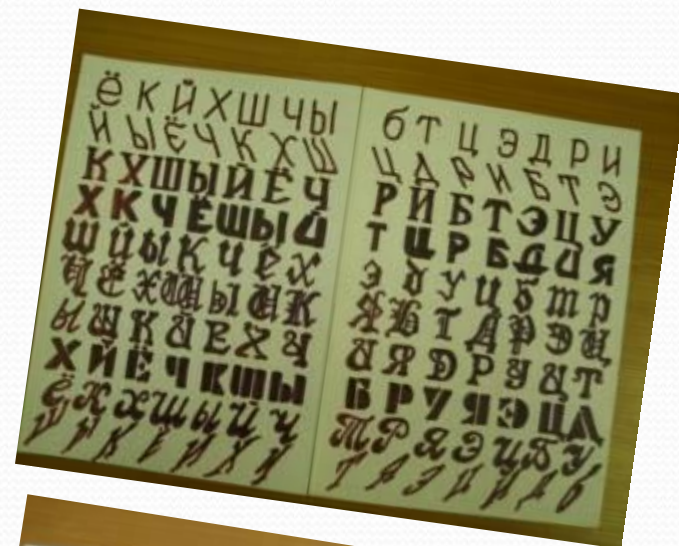 Ё К Й Х Ш Ч Ы
Й Ы Ё Ч К Х Ш
К Х Ш Ы Й Ё Ч
Х К Ч Ё Ш Ы Й
Ш Й Ы К Ч Ё Х
Ч Ё Х Ш Ы Й К
Ы Ш К Й Ё Х Ч
Х Й Ё Ч К Ш Ы
Ё К Х Ш Ы Й Ч
Ш Ы К Ё Й Х Ч
б Т Ц Э Д Р И
Ц Д Р И Б Т Э
Р И Б Т Э Ц У
Т Ц Р Б Д И Я
Э У Ц б т р
Я Б Т Д Р Э Ц
И Я D Р У Ц Т
Б Р У Я Э Ц Д
Т Р Я Э Ц Б У